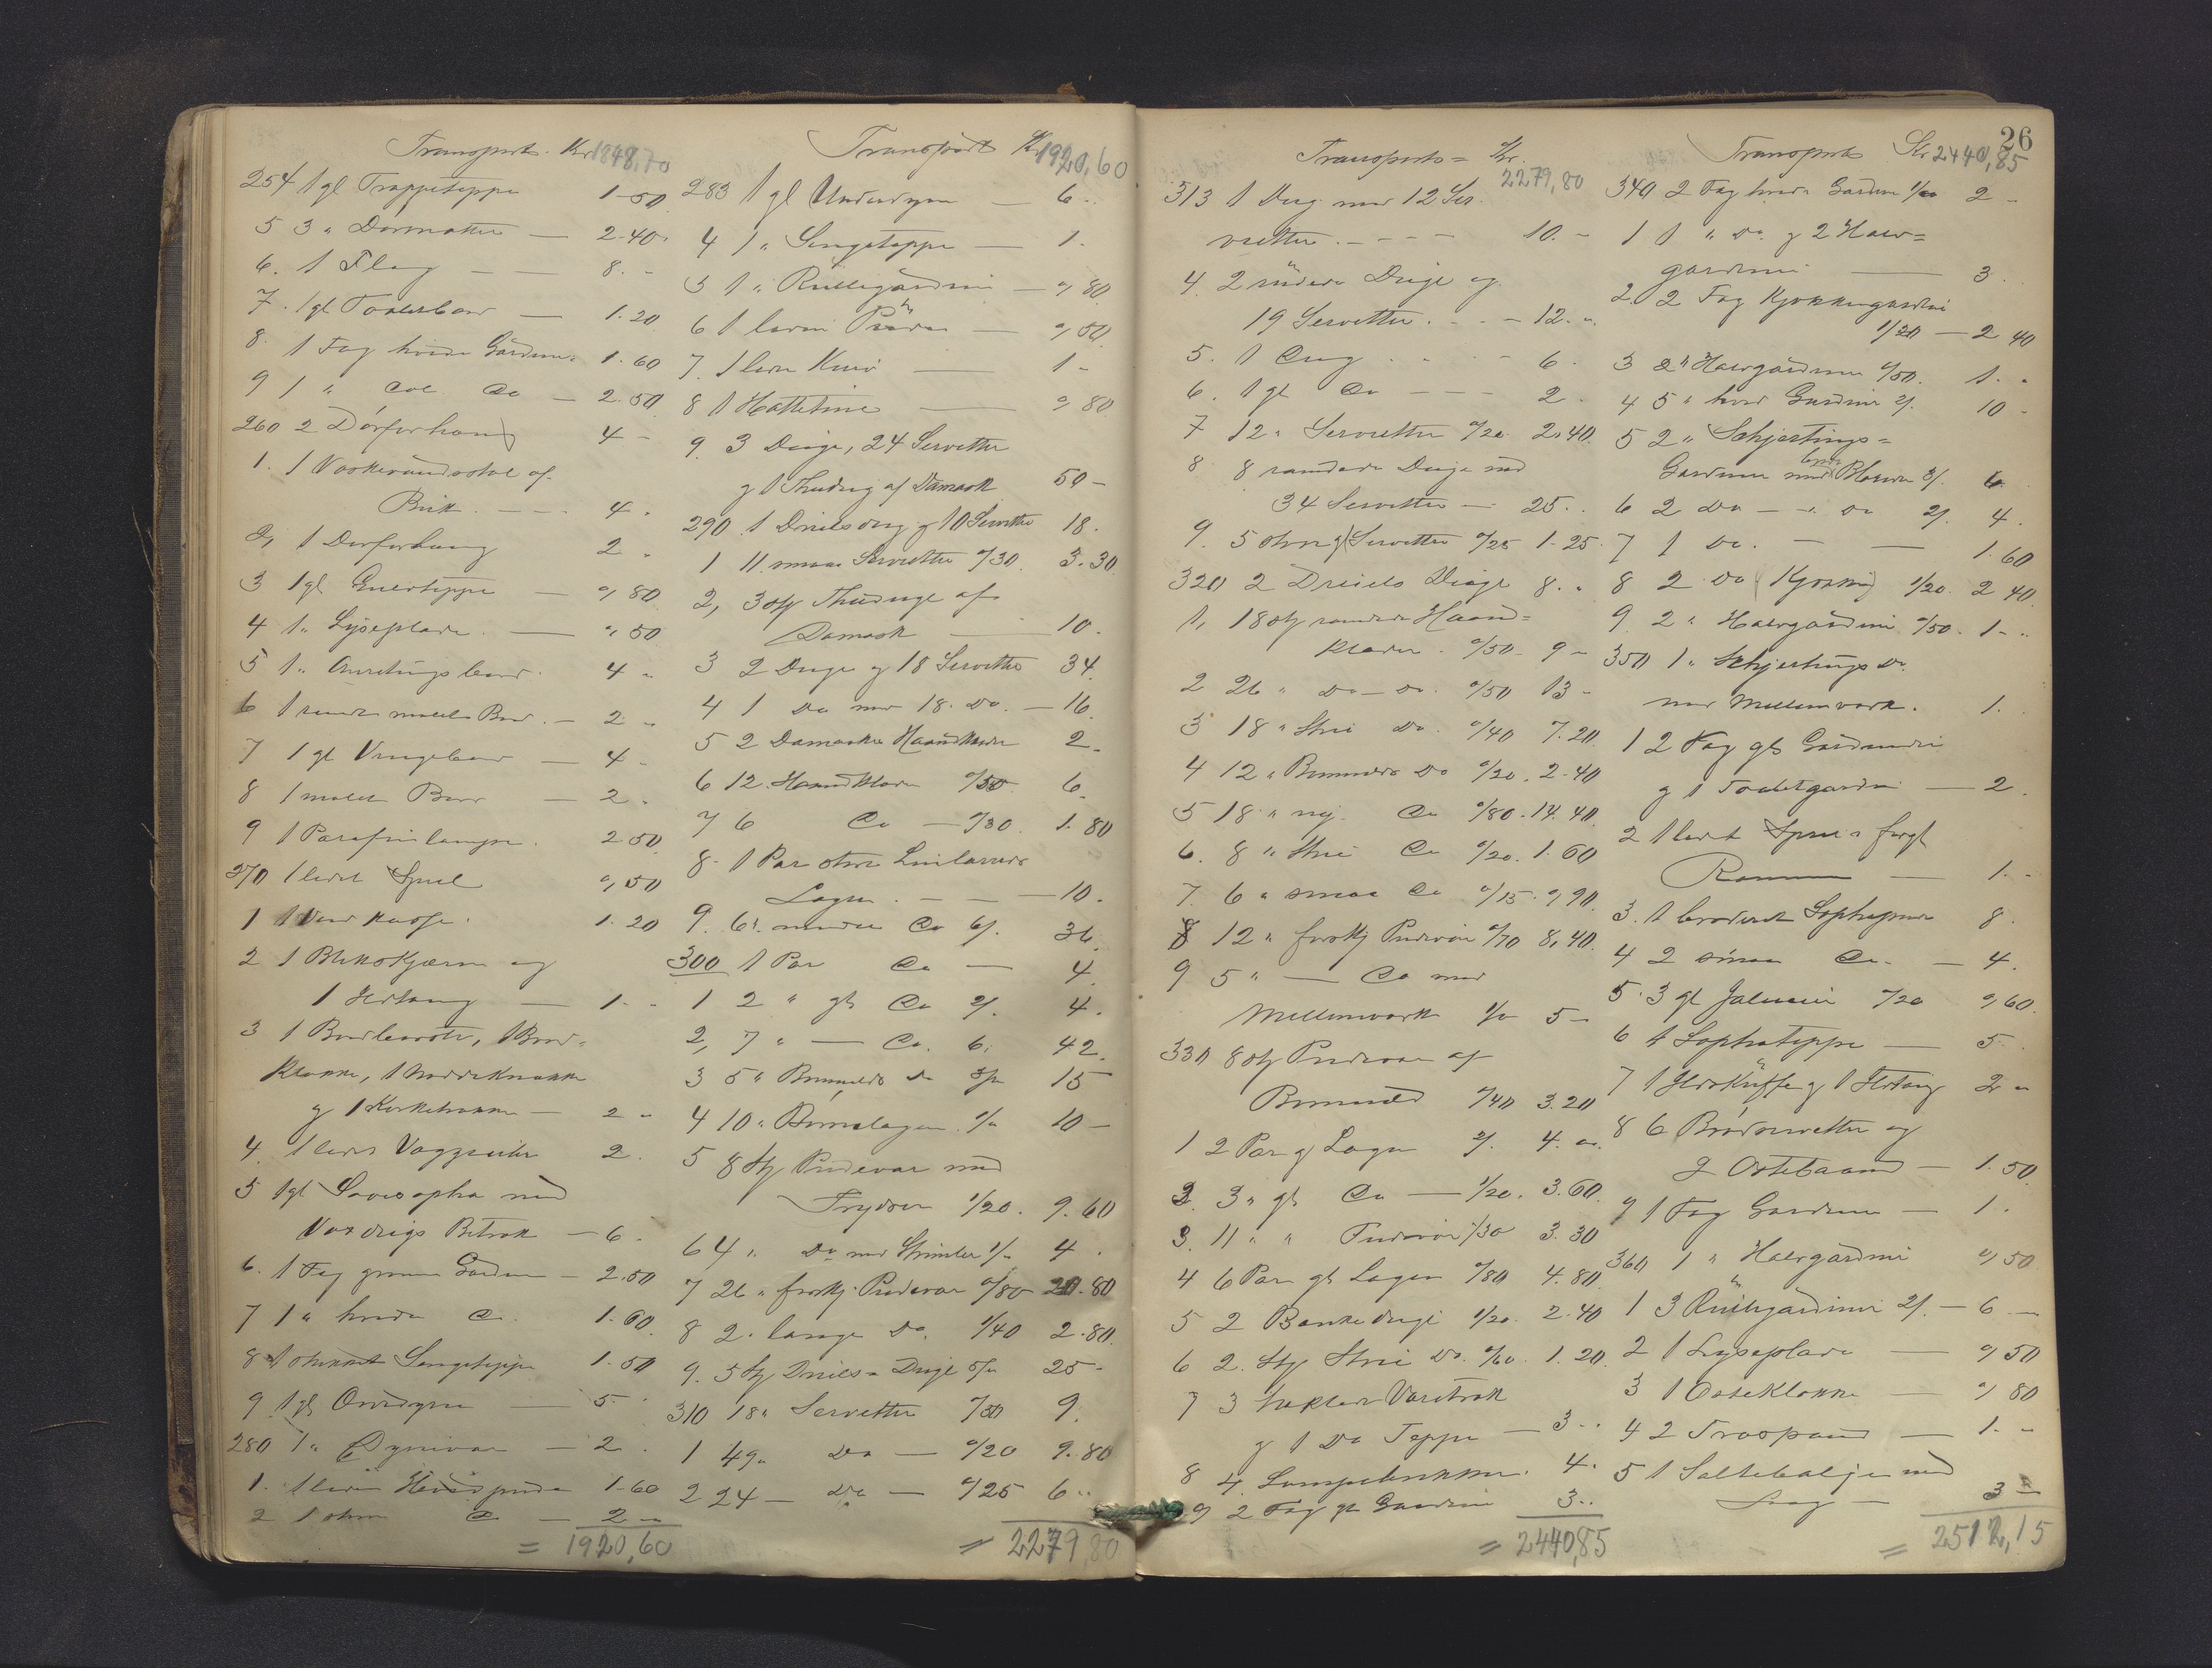 Transport. Kr 1848,70
254 1 gl Trappeteppe 1-50
5 3 " Dørmatter — 2.40.
6. 1 Flag — — 8. -
7. 1 gl Toiletbord — 1.20
8. 1 Fag hvide Gardiner 1.60
9 1 " Do — 2.50
260 2 Dørforhæng 4 -
1. 1 Vaskevandsstol af
Birk. - - - 4.
2, 1 Dørforhæng 2 -
3 1 gl Gulvteppe — " 80
4 1 " Lyseplade. — " 50
5 1 " Anretningsbord. 4 "
6 1 rundt malet Bord. — 2 "
7 1 gl Vingebord — 4 -
8 1 malet Bord — 2 -
9 1 Parafinlampe. 2 50
270 1 lidet Speil " 50
1 1 Vedkasse. 1.20
2 1 Blikskjærm og
1 Ildtang — 1. -
3 1 Brødbørste, 1 Brød-
og 1 — 2 "
4. 1 lidet 2.
5 1 gl Sovesopha med
Voxdugs Betræk — 6.
6. 1 Fag grønne Gardiner — 2.50
7 1 " hvide Do. 1.60
8 1 Sengeteppe 1.50
9 1 gl Overdyne — 5.
280 1 " Dynevar — 2.
1. 1 liden Hovedpude 1.60
2 1 Do — 2 -
= 1920,60
Transport Kr 1920,60
283 1 gl Underdyne — 6 -
4 1 " Sengeteppe — 1.
5 1 " Rullegardin — " 80
6 1 liden — " 50
7. 1 liden Kurv — 1 -
8 1 Hattetine — " 80
9. 3 Duge, 24 Servietter
og 1 Thedug af Damask 50 -
290 1 Dreilsdug og 10 Servietter 18.
1 11 smaa Servietter "/30. 3.30
2, 3 Stk Theduge af
Damask — 10.
3 2 Duge og 18 Servietter 34.
4 1 Do med 18. Do. — 16.
5 2 Damaskes Haandklæder 2 -
6 12. Haandklæder "/50 6.
7 6 Do — "/30. 1.80
8. 1 Par Linlærreds
Lagen. - — — 10.
9. 6 " Do 6/. 36.
300 1 Par Do — 4.
1 2 " gl Do 2/. 4.
2, 7 " — Do. 6. 42.
3 5 " Bomulds Do 3/" 15
4 10 " Børnelagen. 1/" 10 -
5 8 Stk Pudevar med
1/20. 9.60
6 4 " Do med Strimler 1/" 4.
7 26 " forskj. Pudevar "/80 20.80
8 2 " lange Do. 1/40 2.80
9. 5 Stk Dreils- Duge 5/" 25 -
310 18 " Servietter "/50 9.
1 49 " Do — "/20 9.80
2 24 — Do — "/25 6 "
= 2279,80
26
Transport = Kr. 2279,80
313 1 Dug med 12 Ser-
vietter. - - - - 10. -
4. 2 Duge og
19 Servietter. - - - 12. "
5. 1 Dug . . - - 6.
6. 1 gl Do - - - 2 -
7 12 " Servietter "/20 2.40.
8 8 Duge med
34 Servietter — 25 ..
9. 5 Servietter "/25 1-25.
320 2 Dreiels Duge 8. "
1, 18 Stk Haand-
klæder. "/50 - 9 -
2 26 " Do — Do. "/50 13 -
3 18 " Strie Do. "/40 7.20
4 12 " Bomulds Do "/20. 2.40
5 18 " ny. Do "/80. 14.40.
6. 8 " Strie Do "/20. 1.60
7. 6 " smaa Do "/15. " 90.
8 12 " forskj Pudevar "/70 8,40.
9 5 " — Do med
Mellemværk 1/" 5 -
330 8 Stk Pudevar af
Bomuld "/40 3.20
1 2 Par gl Lagen 2/. 4. ".
2 3 " gl Do — 1/20. 3.60.
3. 11 " " Pudevar "/30 3.30
4 6 Par gl Lagen "/80 4.80.
5 2 Banke duge 1/20. 2.40
6 2. Stk Strie Do. "/60. 1.20.
7 3 Varetræk
og 1 Do Teppe — 3 - .
8 4. 4.
9 2 Fag gl Gardiner 3..
= 2440,85
Transport Kr 2440,85
340 2 Fag hvide Gardiner 1/" 2 -
1 1 " Do. og 2 Halv-
gardiner — 3.
2. 2 Fag Kjøkkengardiner
1/20 — 2 40
3 2 " Halvgardiner "/50. 1. "
4 5 " hvide Gardiner 2/. 10 -
5 2 " Schjertings-
Gardiner med Blonder 3/. 6.
6 2 Do — " Do 2/. 4.
7 1 Do. — — 1.60
8 2 Do (Kjøkken) 1/20. 2 40
9 2 " Halvgardiner "/50. 1 - "
350 1 " Schjertings Do.
med Mellemværk. 1.
1 2 Fag gl Gardiner
og 1 Toiletgardin — 2.
2 1 lidet Speil i forgt
Ramme — 1. -
3. 1 broderet Sophapude 8.
4 2 smaa Do. — 4.
5. 3 gl Jalousier "/20 " 60.
6 1 Sophateppe — 5.
7 1 Ildskuffe og 1 Ildtang 2 "
8 6 Brødservietter og
2 — 1.50
9 1 Fag Gardiner — 1.
360 1 " Halvgardiner " 50
1 3 Rullegardiner 2/. — 6 —
2 1 Lyseplade — " 50
3 1 Osteklokke — " 80
4 2 Træspand — 1. "
5 1 Saltebalje med
Laag — 3 -
= 2512,15